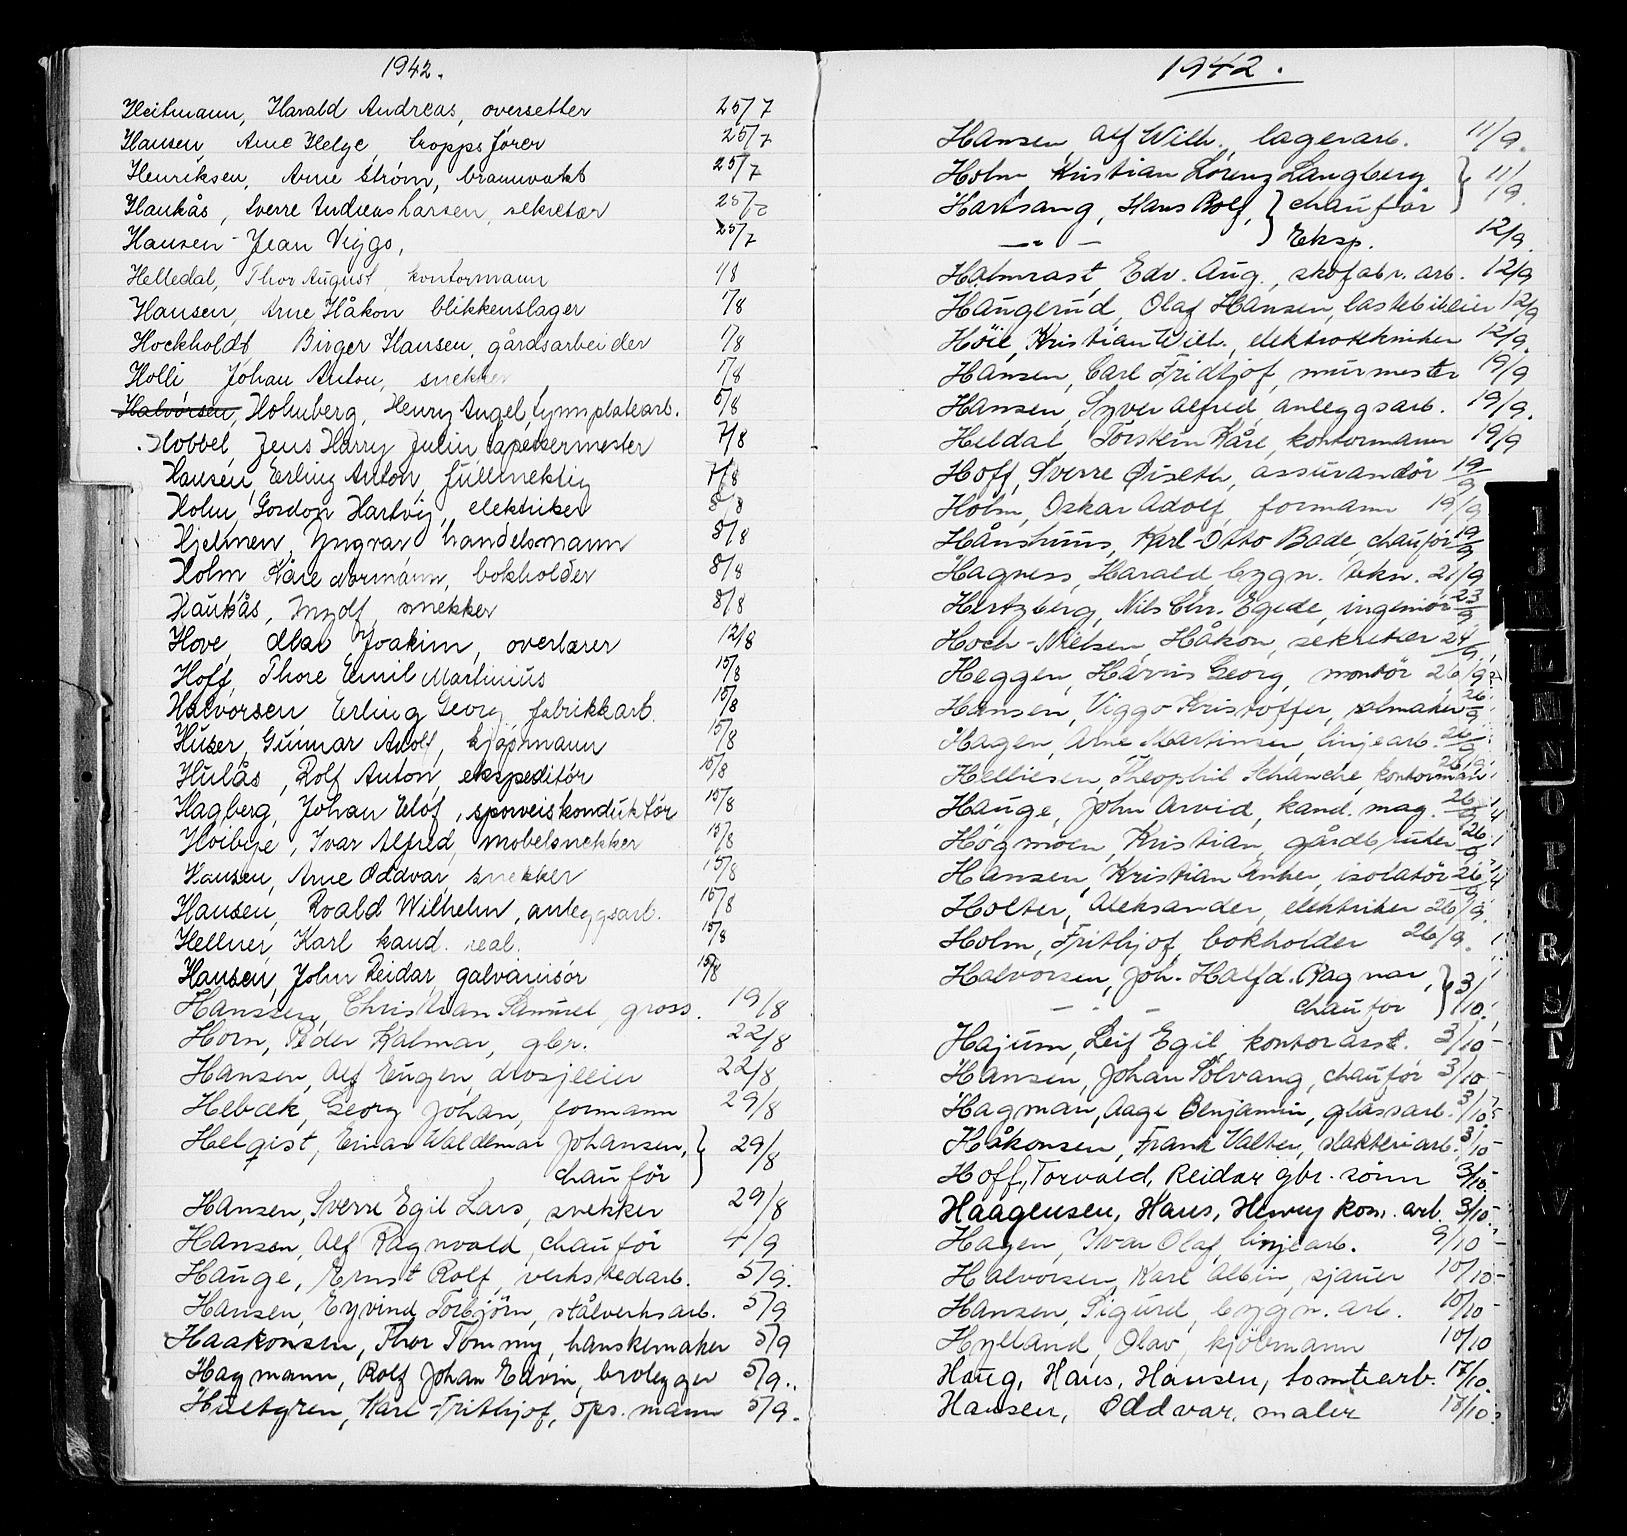 1942.
Heitmann, Harald Andreas, oversetter 25/7
Hansen, Arne Helge, troppsfører 25/7
Henriksen, Arne Strøm, brannvakt 25/7
Haukås, Sverre Andreas Larsen, sekretær 25/7
Hansen, Jean Viggo, 25/7
Helledal, Thor August, kontormann 1/8
Hansen, Arne Håkon blikkenslager 1/8
Hockholdt Birger Hansen, gårdsarbeider 1/8
Holli Johan Anton, snekker 1/8
Halvorsen, Holmberg, Henry Angel, gymplatearb. 5/8
Hobbel, Jens Harry Julin, tapetsermester 7/8
Hansen, Erling Anton, fullmektig 7/8
Holm, Gordon Hartvig, elektriker 8/8
Hjelmen, Yngvar handelsmann 8/8
Holm Kåre Normann, bokholder 8/8
Haukås, Ingolf, snekker 8/8
Hove, Olai Joakim, overlærer 12/8
Hoff, Thore Emil Martinius 15/8
Halvorsen, Erling Georg, fabrikkarb. 15/8
Huser, Gunnar Adolf, kjøpmann 15/8
Hulås, Rolf Anton, ekspeditør 15/8
Hagberg, Johan Elof, sporveiskonduktør 15/8
Hoibye, Ivar Alfred, møbelsnekker 15/8
Hansen, Arne Oddvar, snekker 15/8
Hansen, Roald Wilhelm, anleggsarb. 15/8
Hellner, Karl kand. real. 15/8
Hansen, John Reidar, galvanisør 15/8
Hanssen, Christian Samuel, gross. 19/8
Horn, Peder Kalmar, gbr. 22/8
Hansen, Alf Eugen, drosjeeier 22/8
Hebæk, Georg Johan, formann 29/8
Helqist, Einar Waldemar Johansen, } 29/8
chaufør
Hansen, Sverre Egil Lars, snekker 29/8
Hansen, Alf Ragnvald, chaufør 4/9
Hauge, Ernst Rolf, verkstedarb. 5/9.
Hansen, Eyvind Torbjörn, stålverksarb. 5/9
Haakonsen, Thor Tommy, hanskemaker 5/9
Hagmann, Rolf Johan Edvin, brolegger 5/9.
Hultgren, Karl Frithjof, ops. mann 5/9.
1942.
Hansen, Alf Wilh., lagerarb. 11/9.
Holm Kristian Lorenz Langberg } 11/9
Hartsang, Hans Rolf, } chaufør
— " — Eksp. 12/9.
Halmrast, Edv. Aug., skofabr. arb. 12/9
Haugerud, Olaf Hansen, lastebileier 12/9
Höie, Kristian Wilh., elektrotekniker 12/9.
Hansen, Carl Fridtjof, murmester 19/9
Hansen, Syver Alfred, anleggsarb. 19/9.
Heldal, Torstein Kåre, kontormann 19/9
Hoff, Sverre Øiseth, assurandör 19/9
Holm, Oskar Adolf, formann 19/9
Hånshuus, Karl-Otto Bade, chaufør 19/9
Hagness, Harald bygn. tekn. 21/9
Hertzberg, Nils Chr. Egede, ingeniør 23/9
Hoch-Nielsen, Håkon, sekretær 24/9
Heggen, Harvis Georg, montør 26/9
Hansen, Viggo Kristoffer, salmaker 26/9
Hagen, Arne Martinsen, linjearb. 26/9
Helliesen, Theophil Schanche, kontormann 26/9
Hauge, John Arvid, kand. mag. 26/9
Høgmoen, Kristian, gårdbruker 26/9
Hansen, Kristian Anker, isolatør 26/9
Holter, Aleksander, elektriker 26/9.
Holm, Frithjof, bokholder 26/9.
Halvorsen, Joh. Halfd. Ragnar, } 3/10.
— " — chaufør
Hajum, Leif Egil kontorasst. 3/10
Hansen, Johan Sölvang, chaufør 3/10
Hagman, Aage Benjamin, glassarb. 3/10
Håkonsen, Frank Valter, slakteriarb. 3/10
Hoff, Torvald, Reidar gbr. sønn 3/10
Haagensen, Hans, Henry kom. arb. 3/10
Hagen, Ivar Olaf, linjearb. 9/10
Halvorsen, Karl Albin, sjauer 10/10
Hansen, Sigurd, bygn. arb. 10/10
Hylland, Olav, kjöbmann 10/10
Haug, Hans, Hansen, tomtearb. 17/10.
Hansen, Oddvar, maler 17/10
I
J
K
L
M
N
O
P
Q
R
S
T
U
V
W